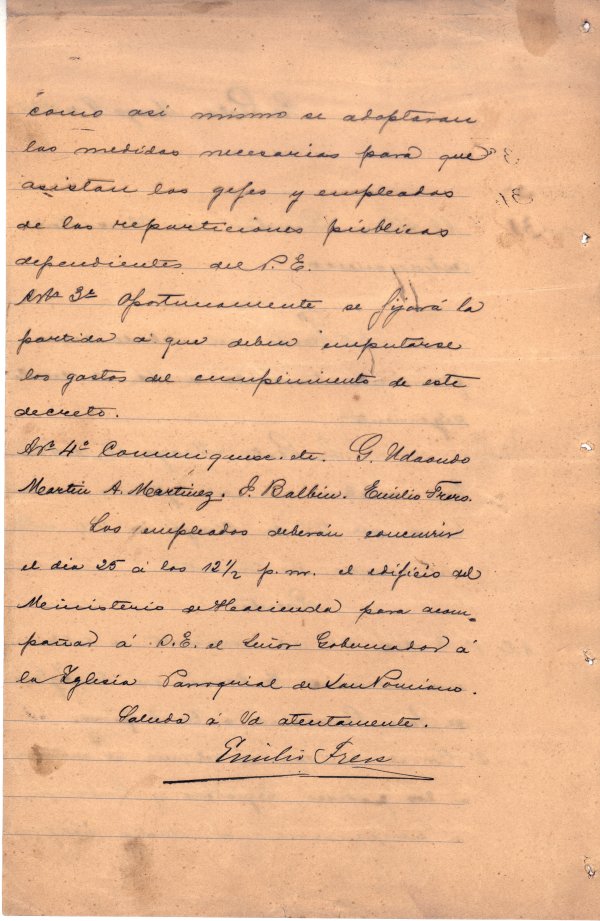 como asi mismo se adoptaran
las medidas necesarias para que
asistan los gefes y empleados
de las reparticiones públicas
dependientes del P. E.
Art. 3º Oportunamente se fijará la
partida á que deben imputarse
los gastos del cumplimiento de este
decreto.
Art. 4º Comuniquese. etc. G. Udaondo
Martin A. Martinez. J. Balbin. Emilio Frers.
Los empleados deberán concurrir
el dia 25 á las 12 1/2 p. m. el edificio del
Ministerio de Hacienda para acom-
pañar á S. E. el Señor Gobernador á
la Iglesia Parroquial de San Ponciano.
Saluda á Vd atentamente.
Emilio Frers